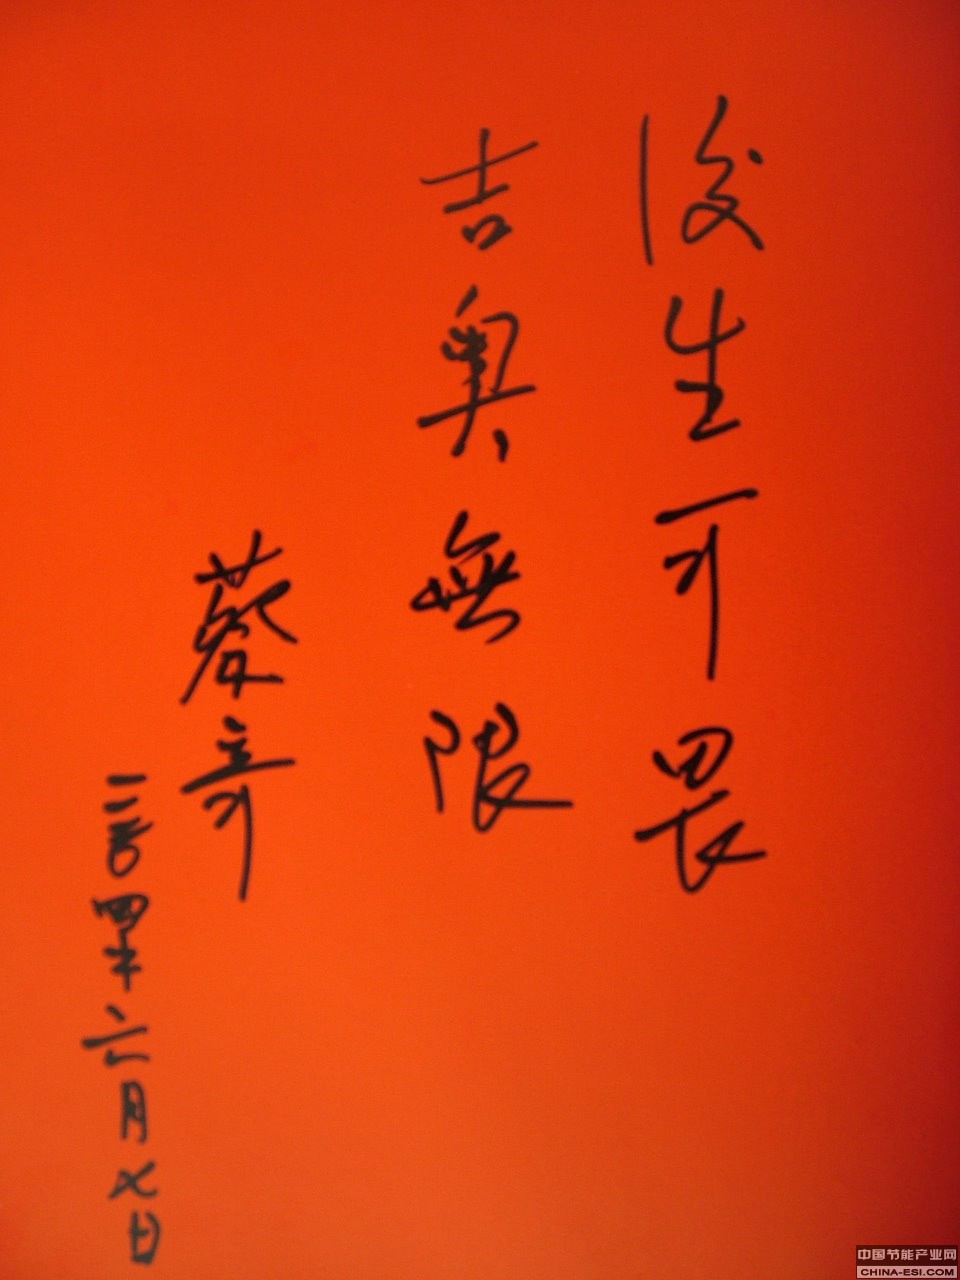 後生可畏
吉奥無限
蔡奇
二〇〇四年六月七日
中国节能产业网
CHINA-ESI.COM